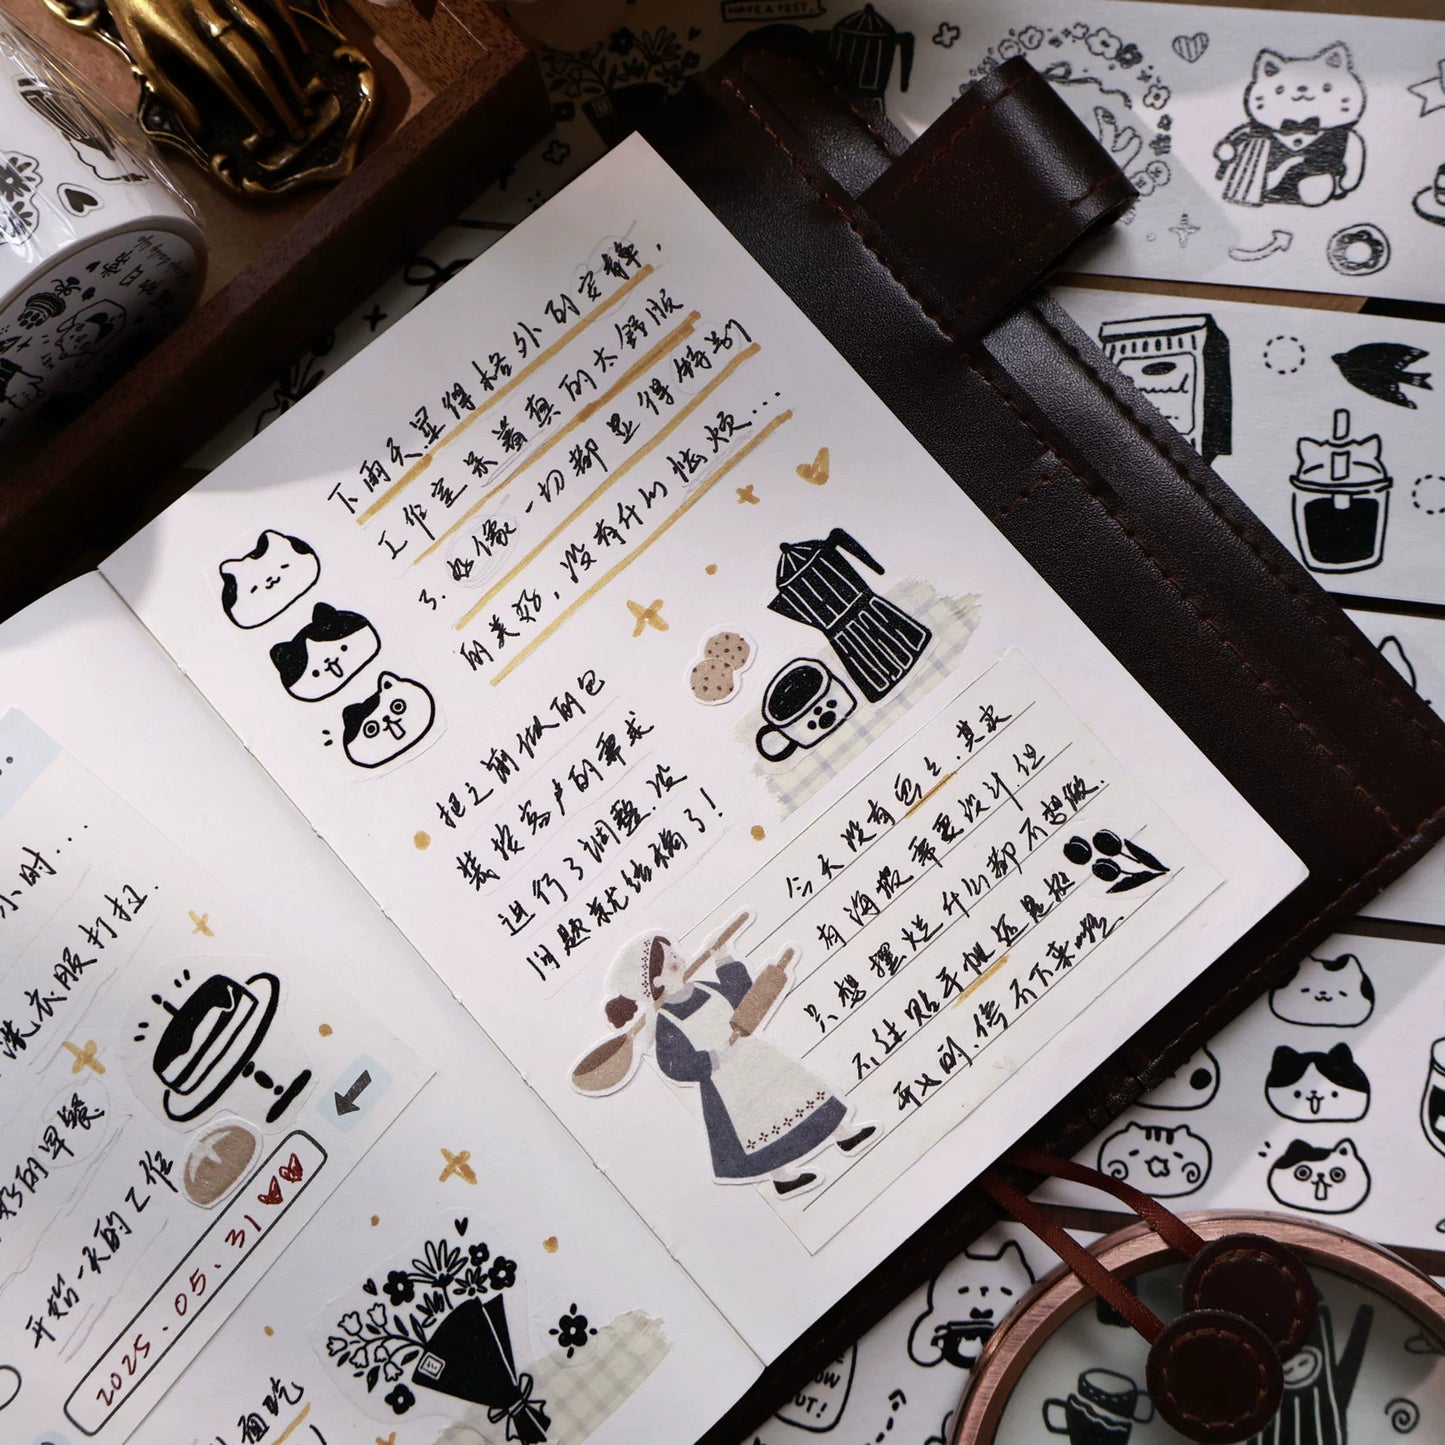 小时...
洗衣服打扫.
的早餐
开始一天的工作
2025.05.31
面吃
下雨天显得格外的安静,
工作室呆着真的太舒服
了. 好像一切都显得特别
的美好, 没有什么怯烦...
把之前做的包
装按客户的需求
进行了调整. 没
问题就结稿了!
今天没有包上. 其实
有海报需要设计. 但
只想摆烂什么都不想做.
不过贴手帐还是挺
开心的. 停不下来啦
HAVE A REST,